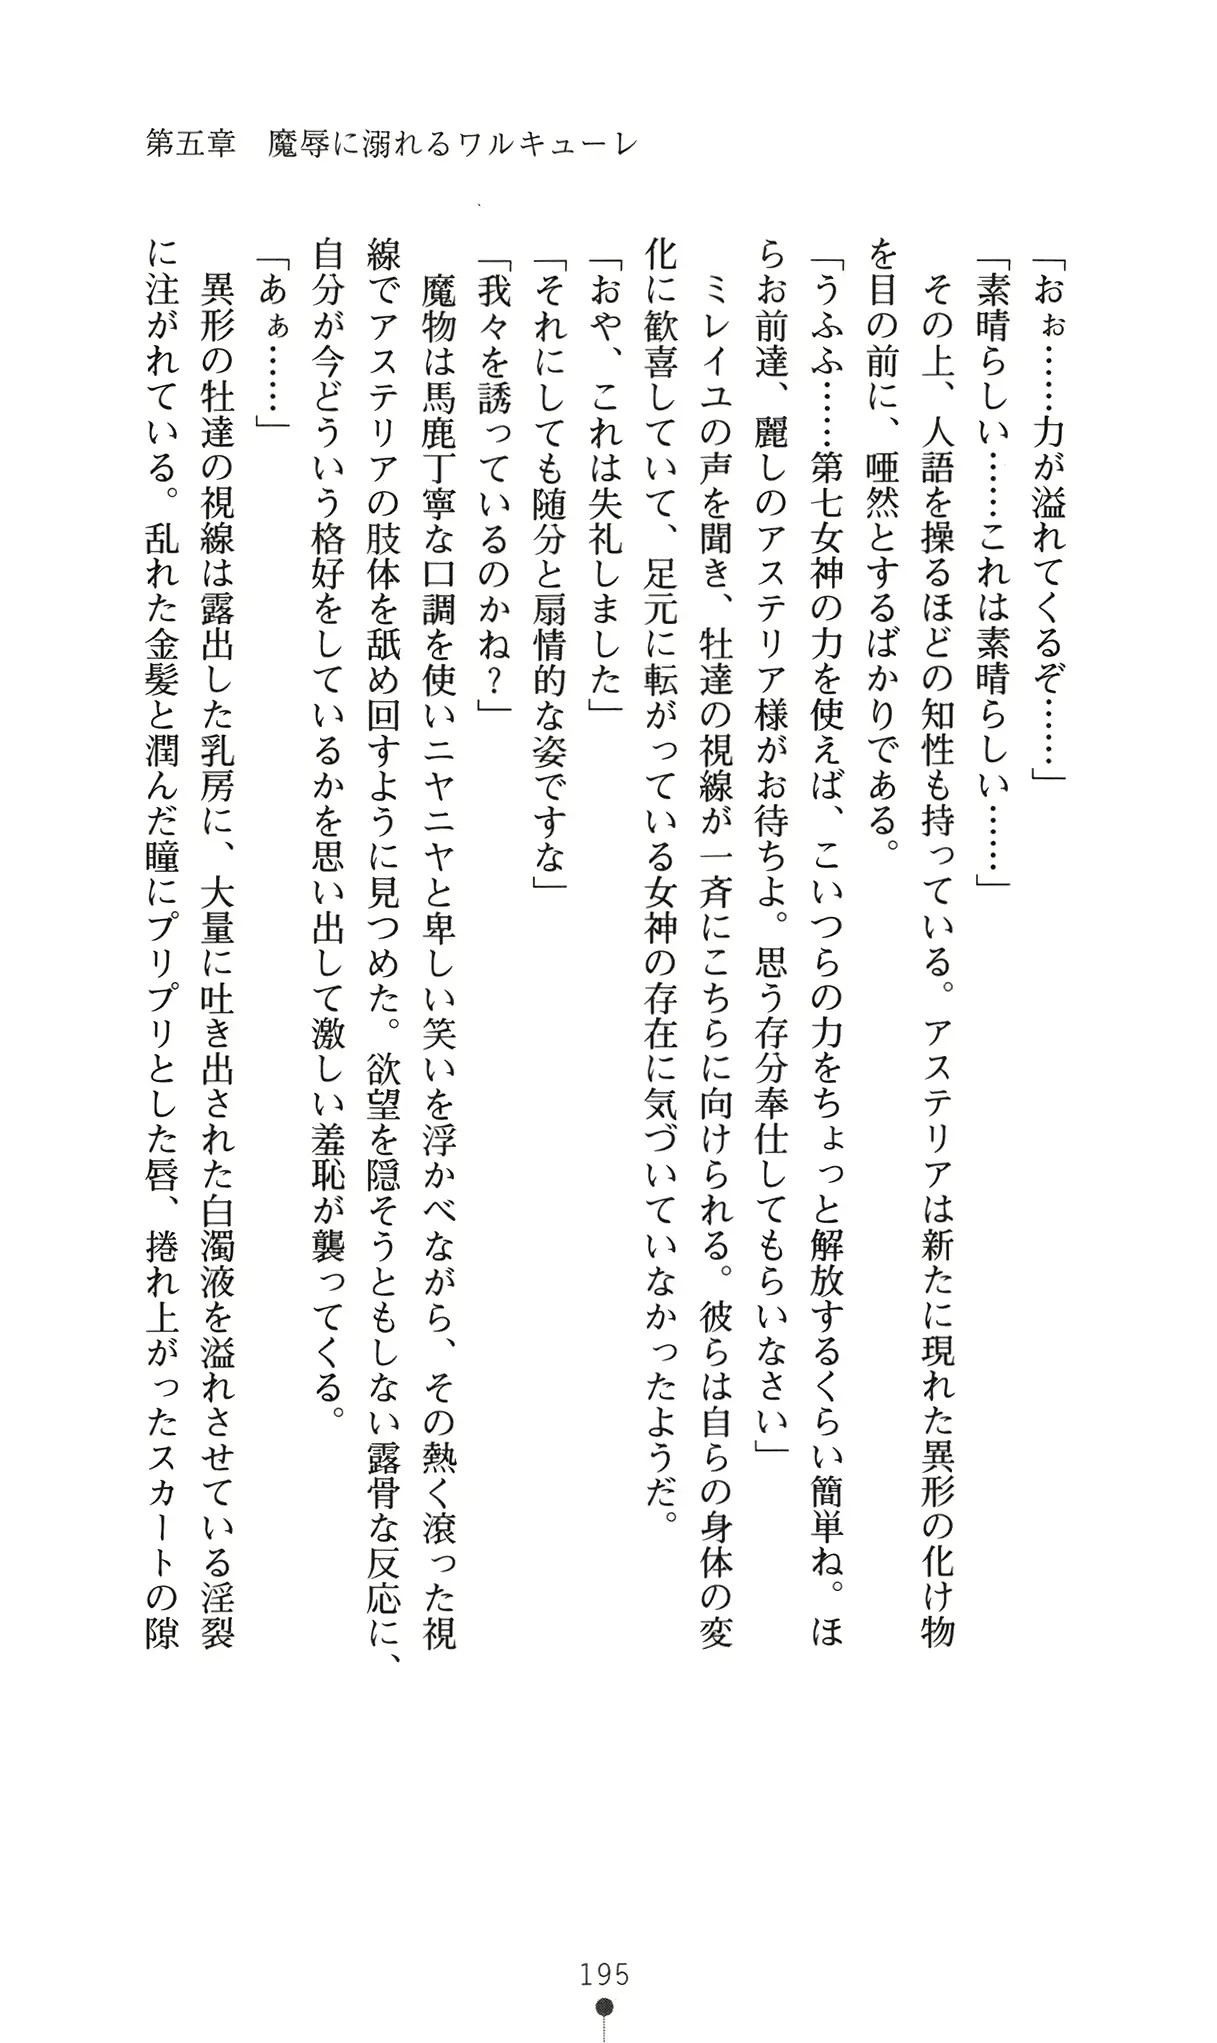 第五章　魔辱に溺れるワルキューレ
「おぉ……力が溢れてくるぞ……」
「素晴らしい……これは素晴らしい……」
　その上、人語を操るほどの知性も持っている。アステリアは新たに現れた異形の化け物
を目の前に、唖然とするばかりである。
「うふふ……第七女神の力を使えば、こいつらの力をちょっと解放するくらい簡単ね。ほ
らお前達、麗しのアステリア様がお待ちよ。思う存分奉仕してもらいなさい」
　ミレイユの声を聞き、牡達の視線が一斉にこちらに向けられる。彼らは自らの身体の変
化に歓喜していて、足元に転がっている女神の存在に気づいていなかったようだ。
「おや、これは失礼しました」
「それにしても随分と扇情的な姿ですな」
「我々を誘っているのかね？」
　魔物は馬鹿丁寧な口調を使いニヤニヤと卑しい笑いを浮かべながら、その熱く滾った視
線でアステリアの肢体を舐め回すように見つめた。欲望を隠そうともしない露骨な反応に、
自分が今どういう格好をしているかを思い出して激しい羞恥が襲ってくる。
「あぁ……」
　異形の牡達の視線は露出した乳房に、大量に吐き出された白濁液を溢れさせている淫裂
に注がれている。乱れた金髪と潤んだ瞳にプリプリとした唇、捲れ上がったスカートの隙
195